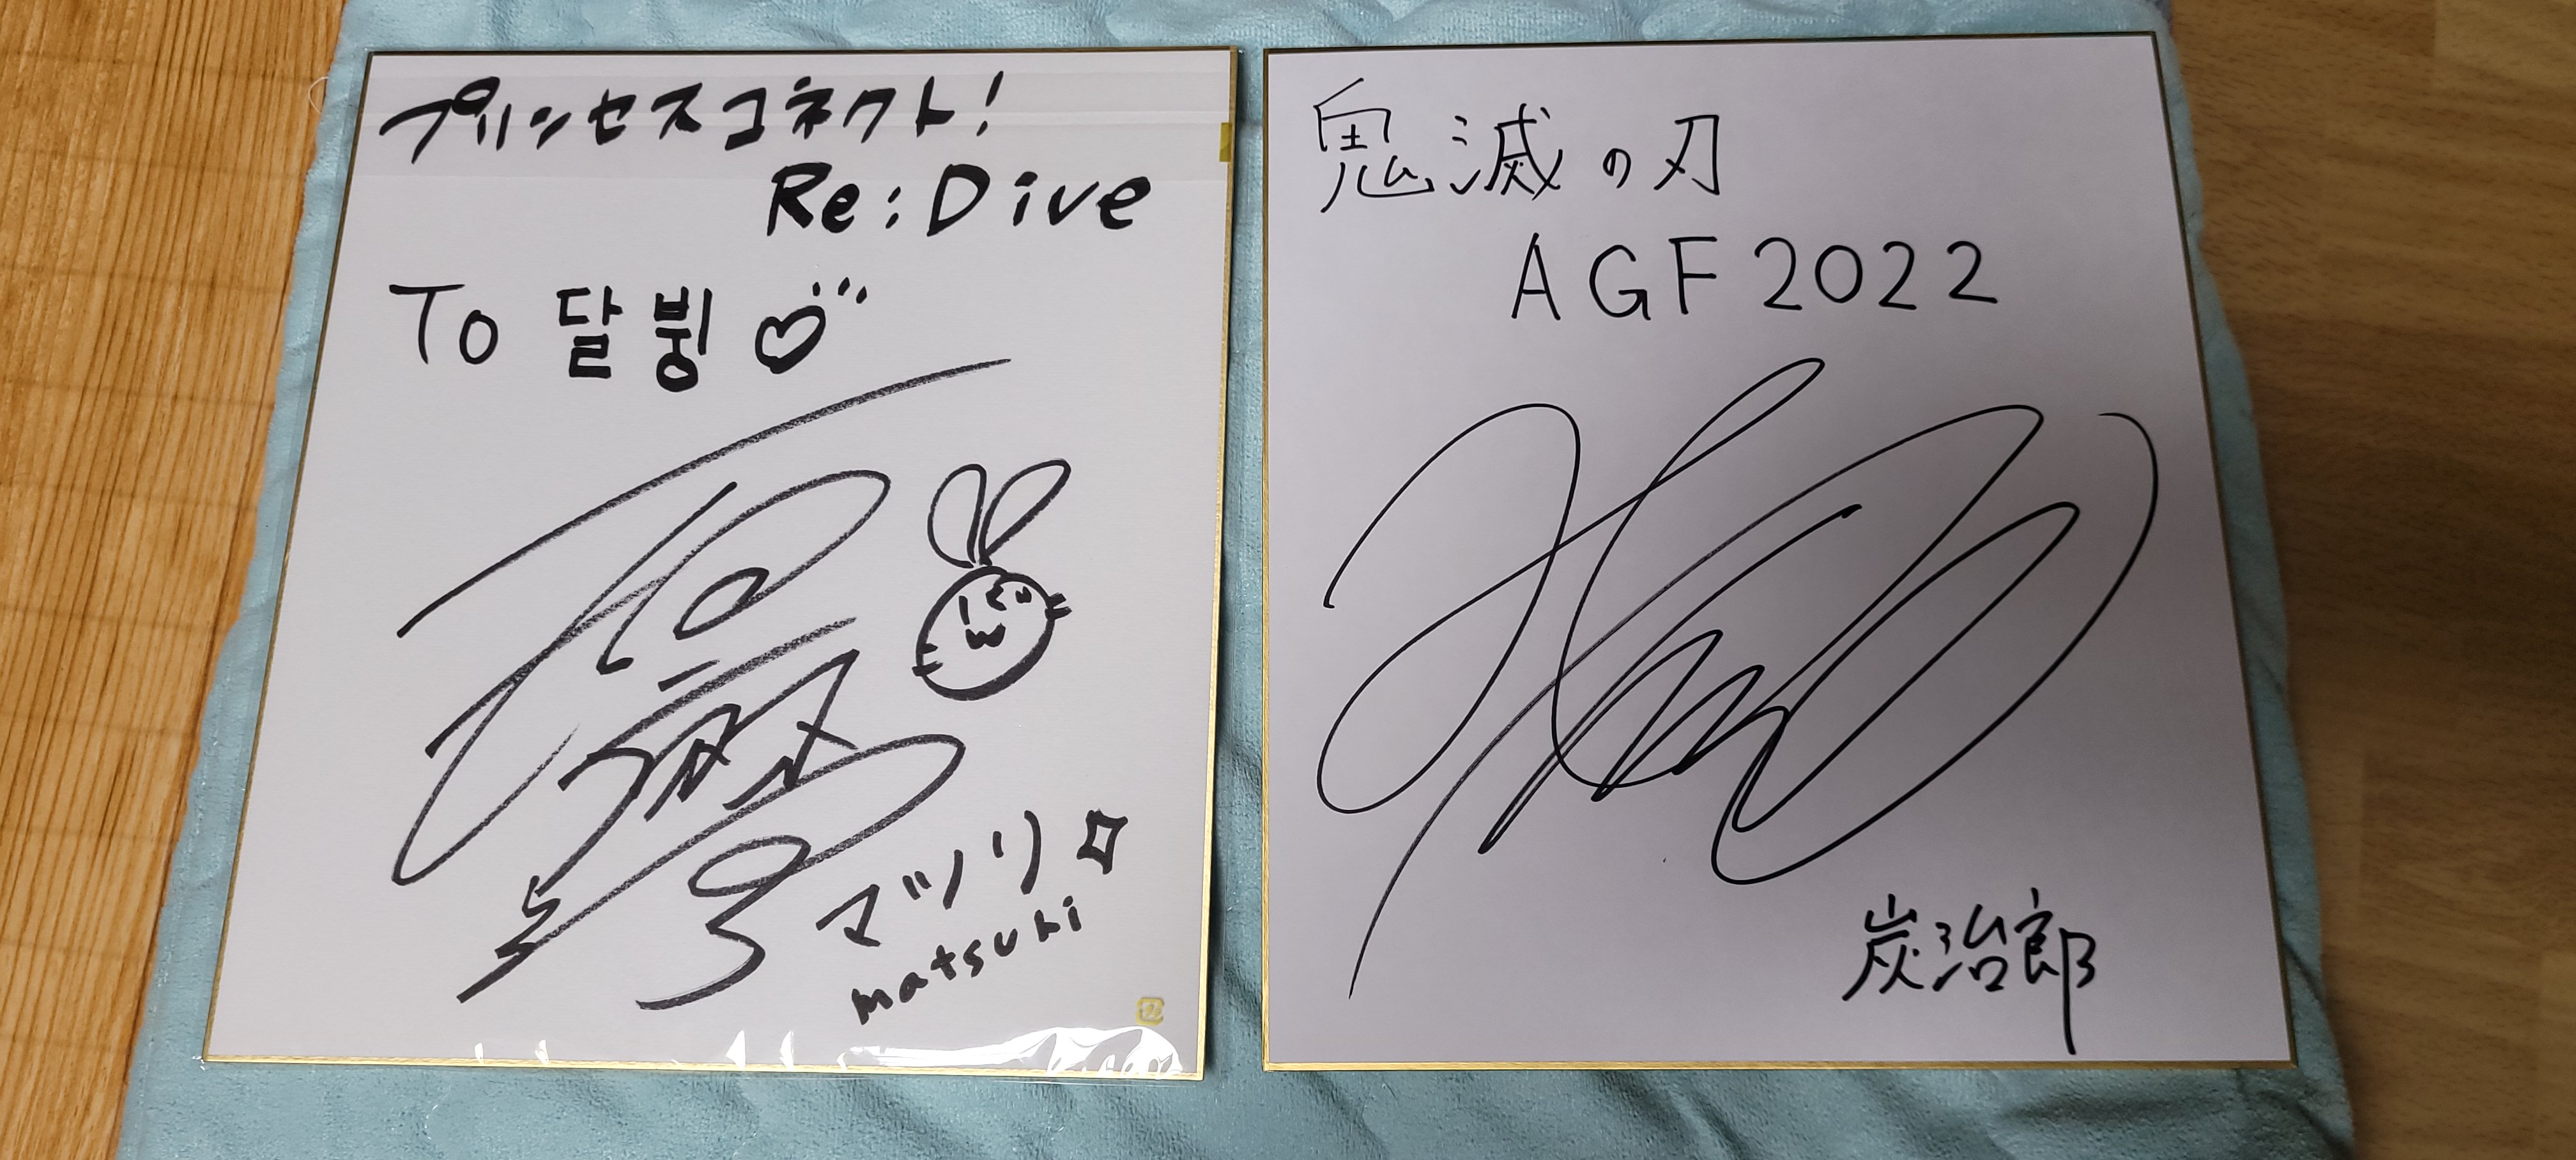 プリンセスコネクト!
Re:Dive
To 달뷩♡
マツリ
matsuri
鬼滅の刃
AGF2022
炭治郎